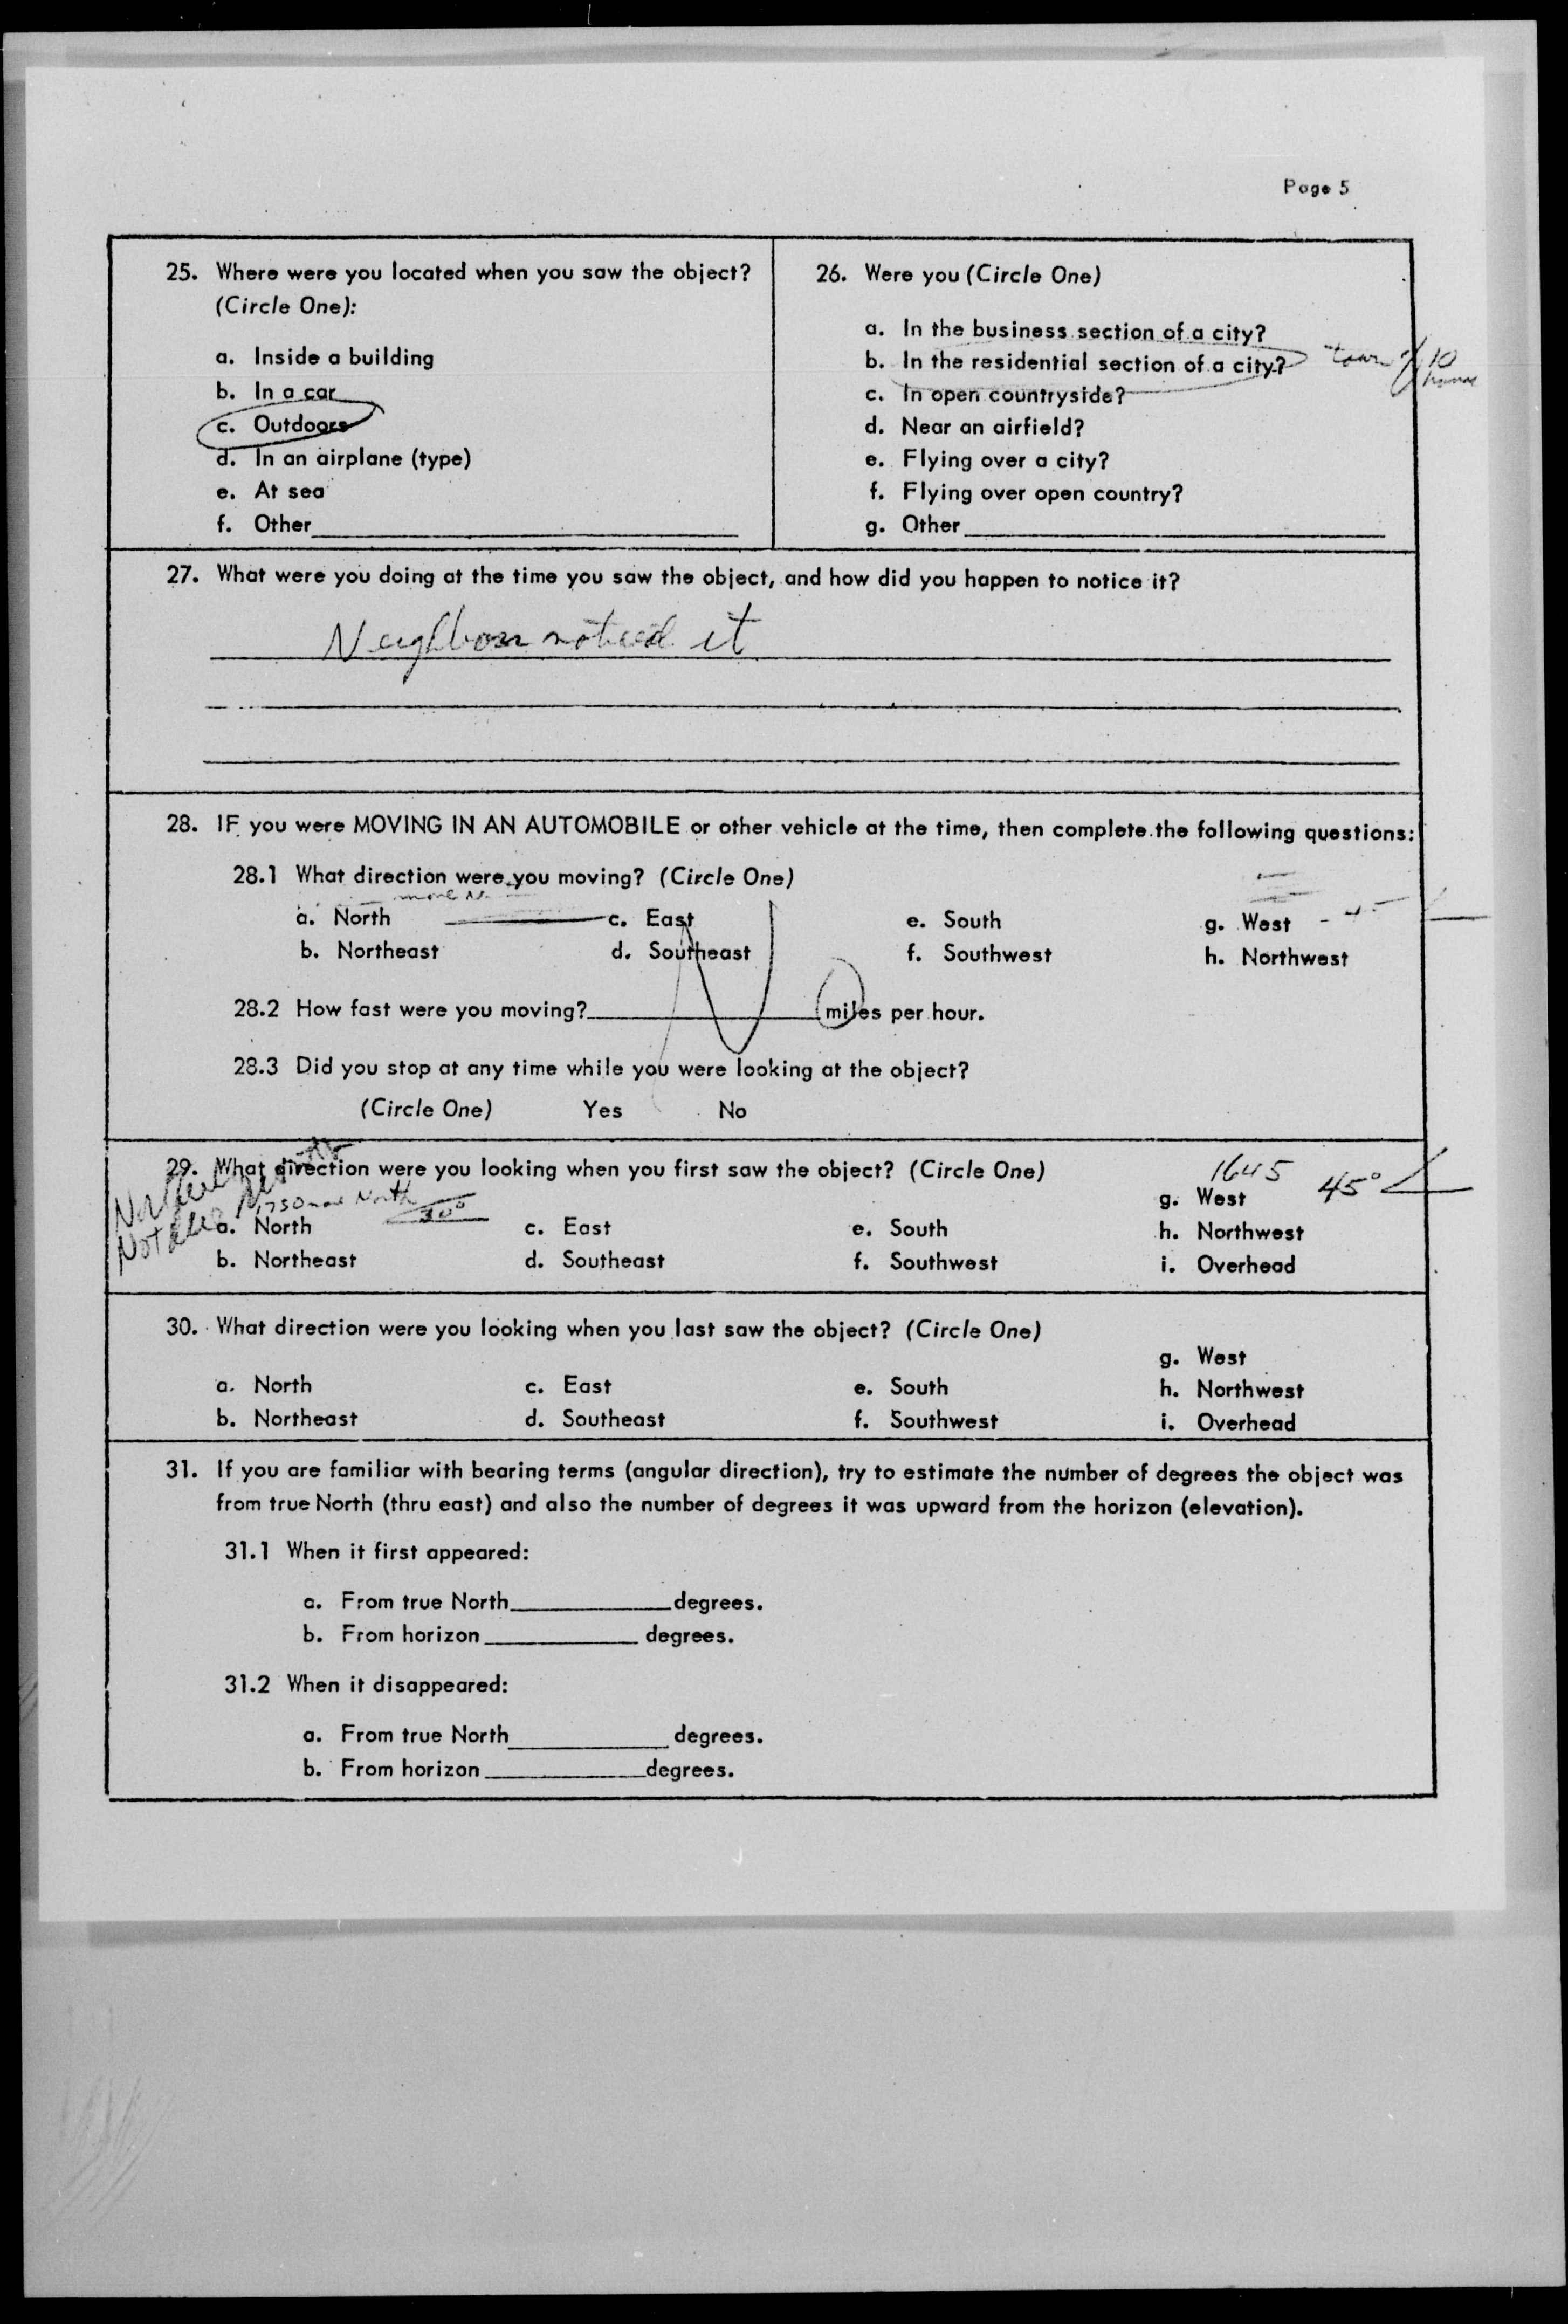 Page 5
25. Where were you located when you saw the object?
(Circle One):
a. Inside a building
b. In a car
c. Outdoors
d. In an airplane (type)
e. At sea
f. Other
26. Were you (Circle One)
a. In the business section of a city?
b. In the residential section of a city? town of 10
c. In open countryside?
d. Near an airfield?
e. Flying over a city?
f. Flying over open country?
g. Other
27. What were you doing at the time you saw the object, and how did you happen to notice it?
Neighbor noticed it
28. IF you were MOVING IN AN AUTOMOBILE or other vehicle at the time, then complete the following questions:
28.1 What direction were you moving? (Circle One)
a. North c. East e. South g. West
b. Northeast d. Southeast f. Southwest h. Northwest
28.2 How fast were you moving? miles per hour.
28.3 Did you stop at any time while you were looking at the object?
(Circle One) Yes No
29. What direction were you looking when you first saw the object? (Circle One)
1645
1730 North 30°
g. West 45°
a. North c. East e. South h. Northwest
b. Northeast d. Southeast f. Southwest i. Overhead
30. What direction were you looking when you last saw the object? (Circle One)
g. West
a. North c. East e. South h. Northwest
b. Northeast d. Southeast f. Southwest i. Overhead
31. If you are familiar with bearing terms (angular direction), try to estimate the number of degrees the object was
from true North (thru east) and also the number of degrees it was upward from the horizon (elevation).
31.1 When it first appeared:
a. From true North degrees.
b. From horizon degrees.
31.2 When it disappeared:
a. From true North degrees.
b. From horizon degrees.